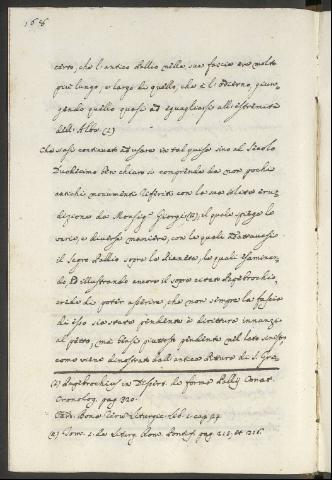 certo, che l'antico Pallio nelle sue fascie era molto
più lungo, e largo di quello, che è l'odierno, giun-
gendo quello quasi ad eguagliarsi all'estremità
dell'Alba. (1)
Che siasi continuato ad usare in tal guisa sino al Secolo
Duodecimo ben chiaro si comprende da non pochi
antichi monumenti riferiti con la sua solita eru-
dizione da Monsig.r Giorgi (2), il quale spiega le
varie, e diverse maniere, con le quali
il Sagro Pallio sopra la Pianeta, le quali esaminan-
do, ed illustrando ancora il sopracitato Papebrochio,
crede di poter asserire, che non sempre la fascia
di esso sia stata pendente a dirittura innanzi
al petto, ma bensì piuttosto pendente nel lato sinistro,
come viene dimostrato dall'antica Pittura di S. Gre-
(1) Papebrochius in Dissert. de forma Pallij Conat.
Cronolog. pag. 320.
Card. Bona Rer. Liturgic. Lib. 1. cap. 24
(2) Tom. 1. de Liturg. Rom. Pontif. pag. 212, et 216.